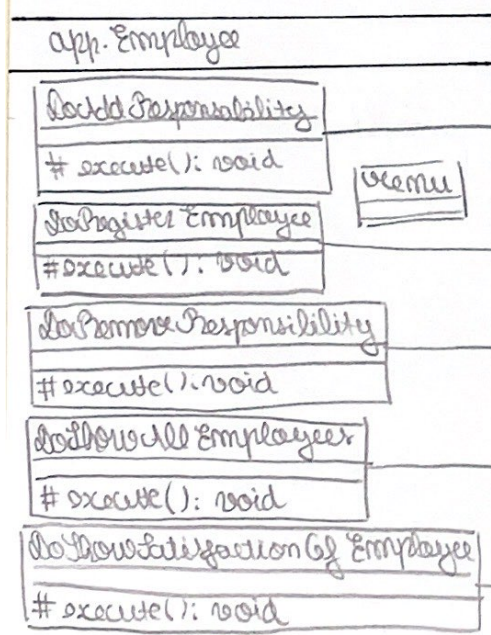 app.Employee
DoAddResponsability
# execute(): void
Menu
DoRegisterEmployee
# execute(): void
DoRemoveResponsibility
# execute(): void
DoShowAllEmployees
# execute(): void
DoShowSatisfactionOfEmployee
# execute(): void